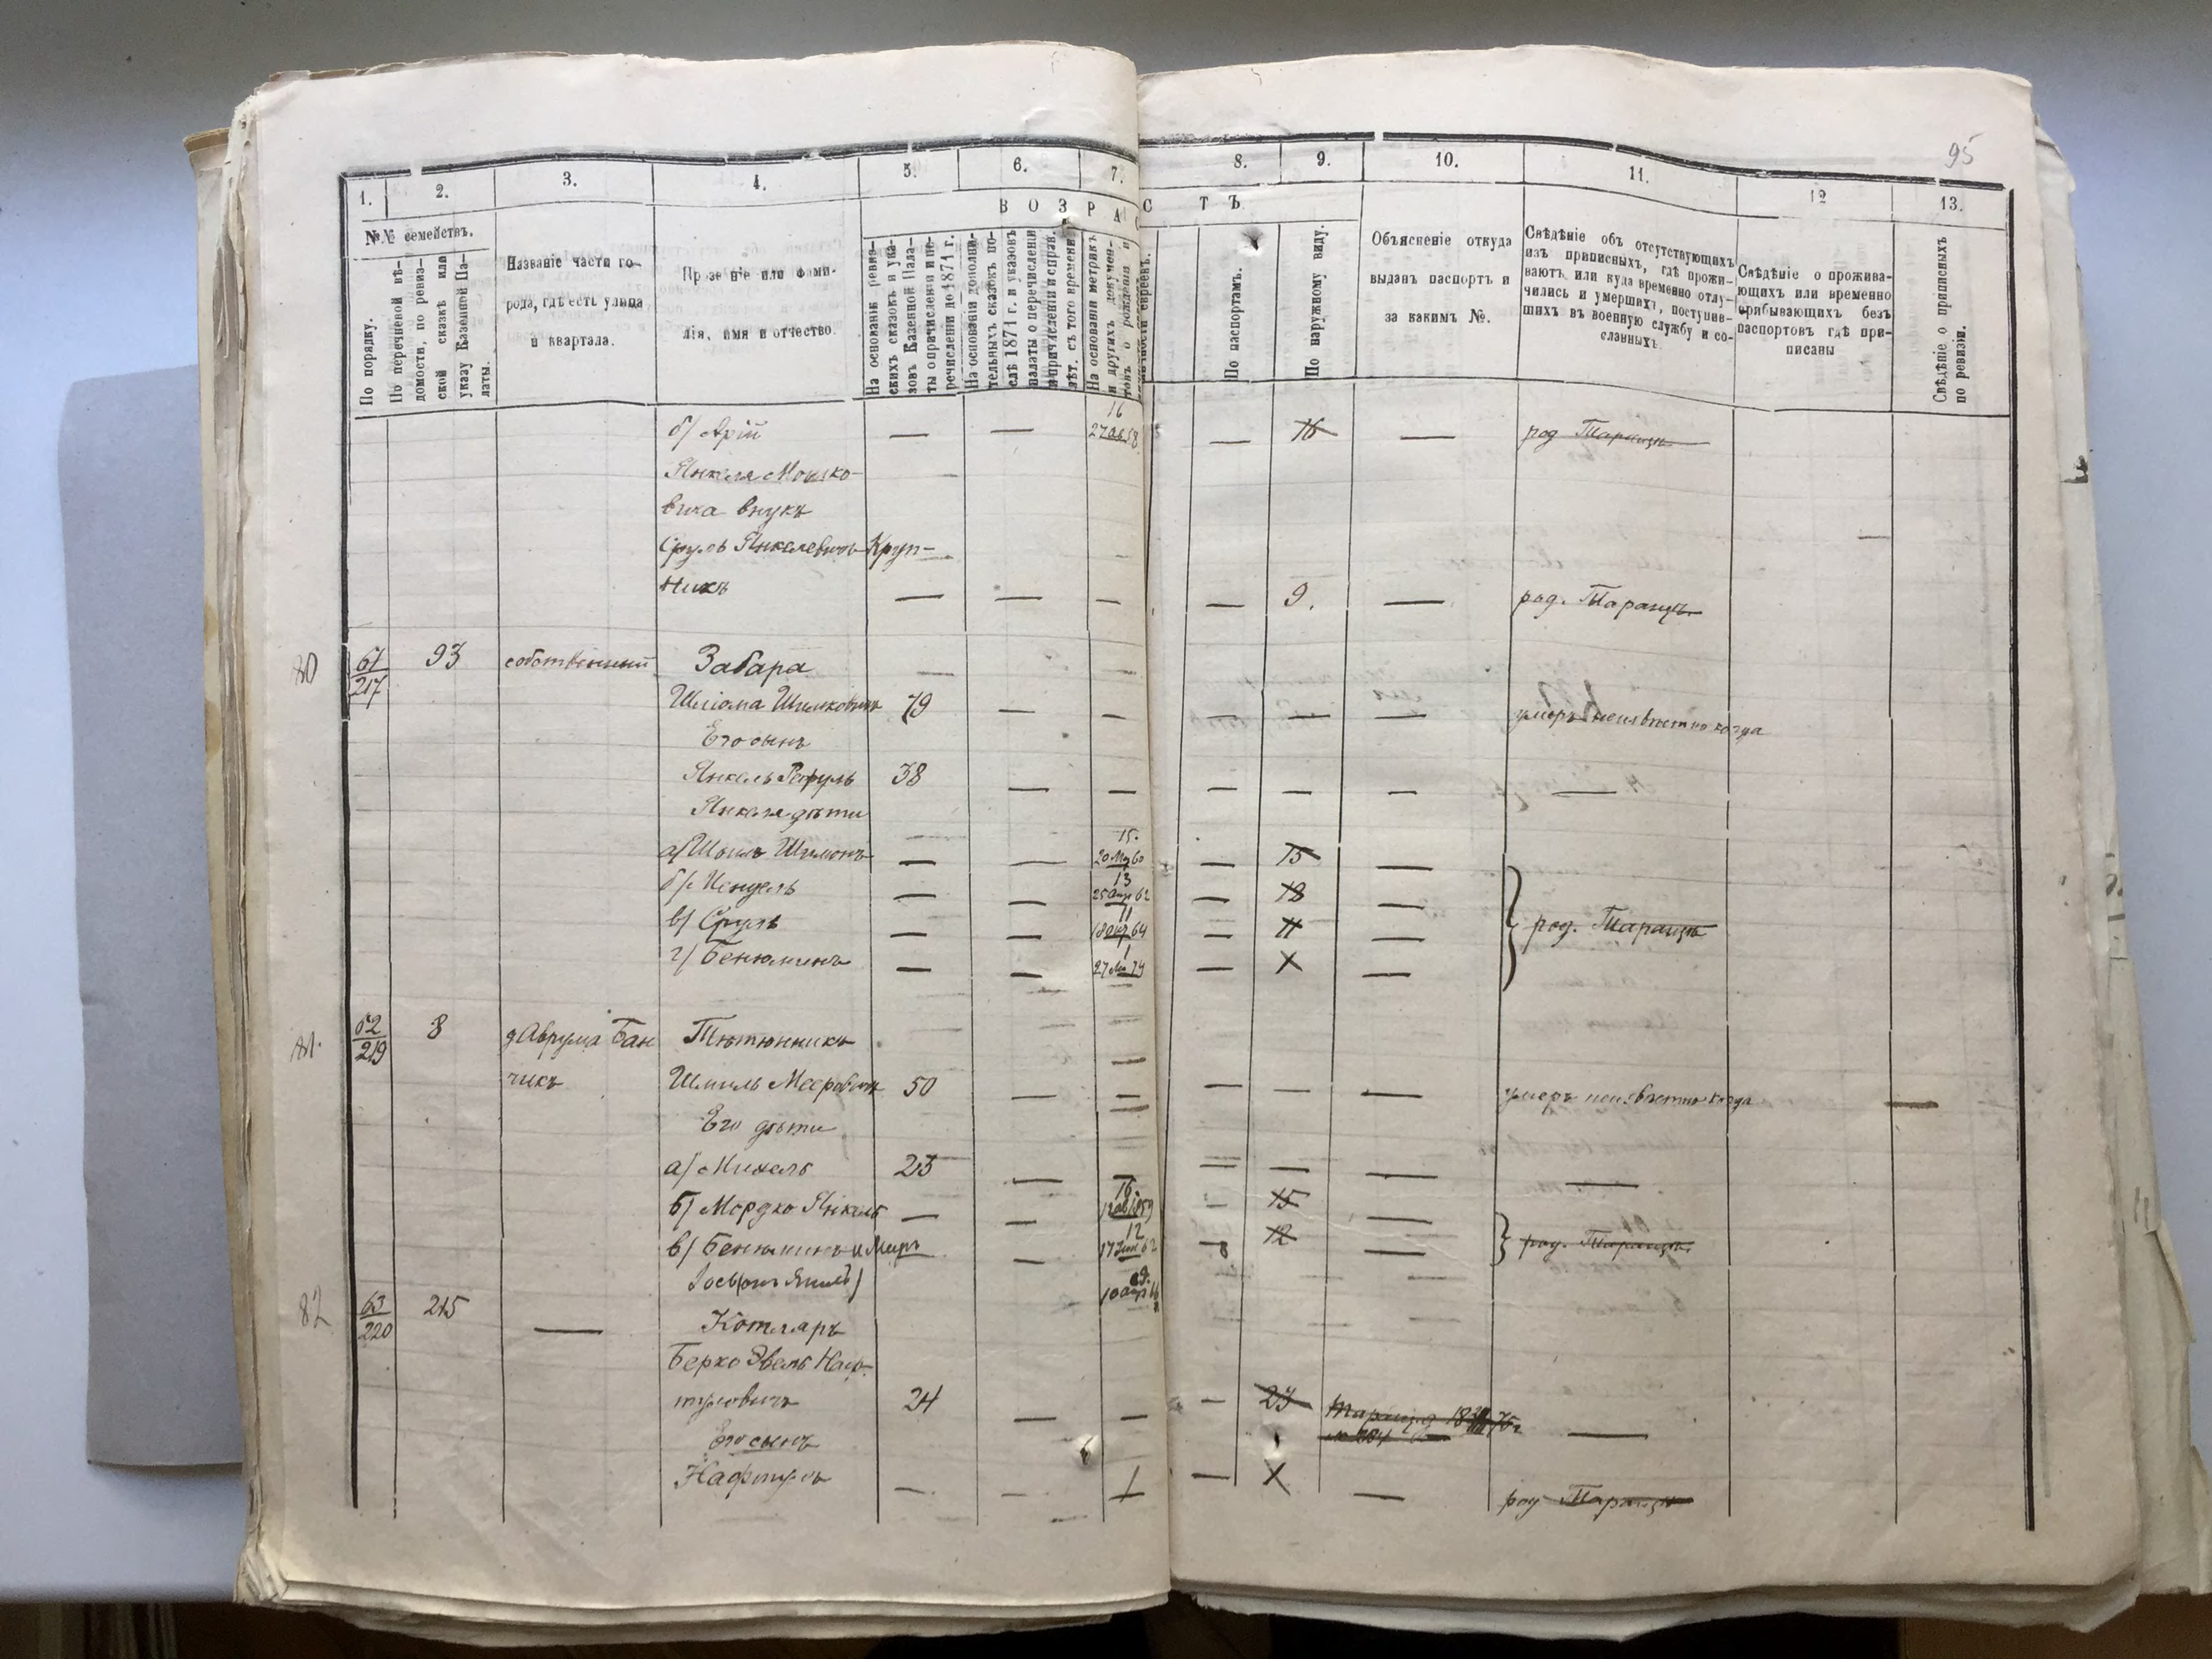 95
1. 2. 3. 4. 5. 6. 7. 8. 9. 10. 11. 12 13.
№№ семействъ.
В О З Р А С Т Ъ
По порядку.
По перечневой вѣ-
домости, по ревиз-
ской сказкѣ или
указу Казенной Па-
латы.
Названіе части го-
рода, гдѣ есть улица
и квартала.
Прозваніе или фами-
лія, имя и отчество.
На основаніи ревиз-
скихъ сказокъ и ука-
зовъ Казенной Пала-
ты о причисленіи и пе-
речисленіи до 1871 г.
На основаніи дополни-
тельныхъ сказокъ по-
слѣ 1871 г. и указовъ
палаты о перечисленіи
и причисленіи и справ.
лѣт. съ того времени.
На основаніи метрикъ
и другихъ докумен-
товъ о рожденіи и
евреевъ.
По паспортамъ.
По наружному виду.
Объясненіе откуда
выданъ паспортъ и
за какимъ №.
Свѣдѣніе объ отсутствующихъ
изъ приписныхъ, гдѣ прожи-
ваютъ или куда временно отлу-
чились и умершихъ, поступив-
шихъ въ военную службу и со-
сланныхъ
Свѣдѣніе о прожива-
ющихъ или временно
прибывающихъ безъ
паспортовъ гдѣ при-
писаны
Свѣдѣніе о приписныхъ
по ревизіи.
б/ Арій — — 16 — 16 — род Таращѣ
27 ав 58
Янкеля Мошко-
вича внукъ
Сруль Янкелевичъ Круп-
никъ — — — — 9. — род. Таращѣ
80 61/217 93 собственный Забара
Шліома Шимковичъ 79 — — — — — умеръ неизвѣстно когда
Его сынъ
Янкель Рефуль 38 — — — — — —
Янкеля дѣти
а/ Шоилъ Шимонъ — — 15. — 15 —
20 Мр 60
б/ Мендель — — 13 — 13 —
25 апр 62
в/ Сруль — — 11 — 11 — род. Таращѣ
18 64
г/ Бенюминъ — — 1 — X —
27 74
81. 62/219 8 д Аврума Бан Тютюнникъ
чикъ Шмиль Мееровичъ 50 — — — — — умеръ неизвѣстно когда —
Его дѣти
а/ Михель 23 — — — — — —
б/ Мордко Янкель — — 16 — 15 —
12 ав 1859
в/ Бенюминъ и Меиръ — 12 — 12 — род. Таращѣ.
17 62
10
82 63/220 215 — Котляръ
Берко Эвель Наф-
туловичъ 24 — — — 23 —
Его сынъ
Нафтуль — — 1 — X — род Таращѣ